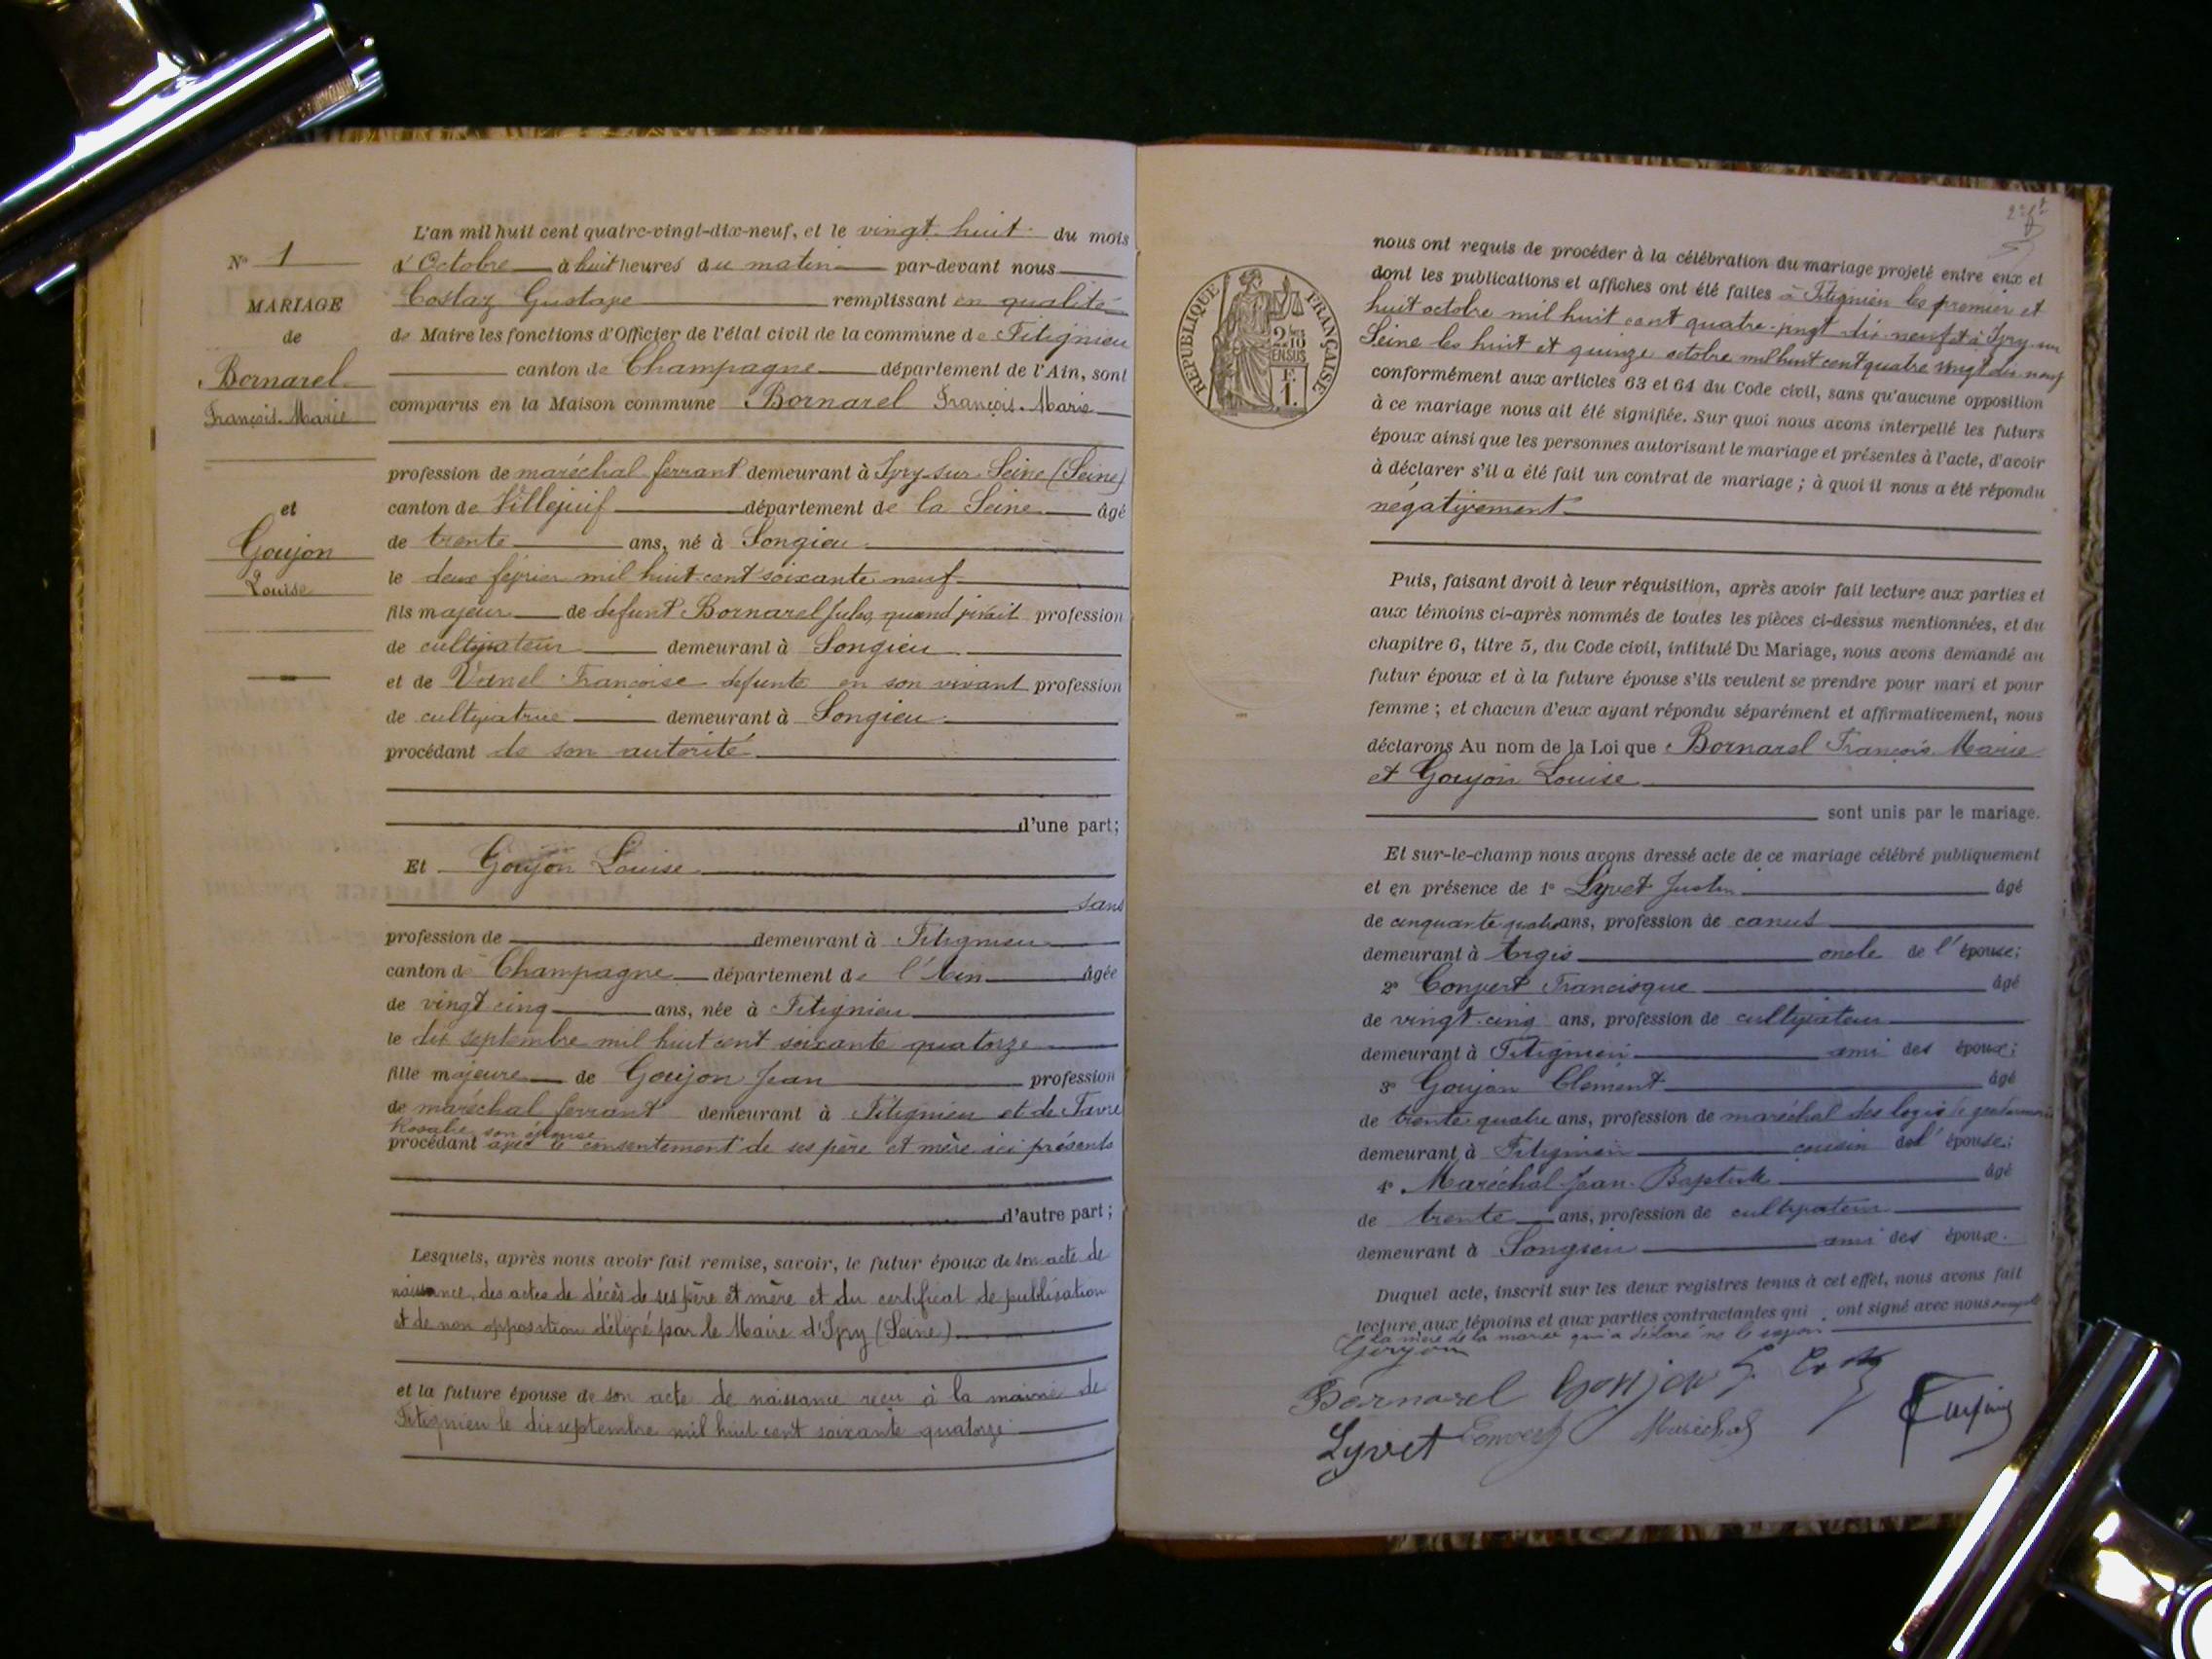 N° 1
MARIAGE
de
Bornarel
François-Marie
et
Goujon
Louise
L'an mil huit cent quatre-vingt-dix-neuf, et le vingt huit du mois
d'Octobre à huit heures du matin par-devant nous
Costaz Gustave remplissant en qualité
de Maire les fonctions d'Officier de l'état civil de la commune de Fitignieu
canton de Champagne département de l'Ain, sont
comparus en la Maison commune Bornarel François-Marie
profession de maréchal ferrant demeurant à Ivry-sur-Seine (Seine)
canton de Villejuif département de la Seine âgé
de trente ans, né à Songieu
le deux février mil huit cent soixante neuf
fils majeur de défunt Bornarel Jules, quand vivait profession
de cultivateur demeurant à Songieu
et de Vanel Françoise défunte en son vivant profession
de cultivatrice demeurant à Songieu
procédant de son autorité
d'une part;
Et Goujon Louise
sans
profession de demeurant à Fitignieu
canton de Champagne département de l'Ain âgée
de vingt cinq ans, née à Fitignieu
le dix septembre mil huit cent soixante quatorze
fille majeure de Goujon Jean profession
de maréchal ferrant demeurant à Fitignieu et de Favre
Rosalie son épouse
procédant avec le consentement de ses père et mère ici présents
d'autre part;
Lesquels, après nous avoir fait remise, savoir, le futur époux de son acte de
naissance, des actes de décès de ses père et mère et du certificat de publication
et de non opposition délivré par le Maire d'Ivry (Seine)
et la future épouse de son acte de naissance reçu à la mairie de
Fitignieu le dix septembre mil huit cent soixante quatorze
RÉPUBLIQUE FRANÇAISE
2/10 EN SUS
1 F.
nous ont requis de procéder à la célébration du mariage projeté entre eux et
dont les publications et affiches ont été faites à Fitignieu les premier et
huit octobre mil huit cent quatre-vingt dix neuf et à Ivry sur
Seine les huit et quinze octobre mil huit cent quatre vingt dix neuf
conformément aux articles 63 et 64 du Code civil, sans qu'aucune opposition
à ce mariage nous ait été signifiée. Sur quoi nous avons interpellé les futurs
époux ainsi que les personnes autorisant le mariage et présentes à l'acte, d'avoir
à déclarer s'il a été fait un contrat de mariage; à quoi il nous a été répondu
négativement
Puis, faisant droit à leur réquisition, après avoir fait lecture aux parties et
aux témoins ci-après nommés de toutes les pièces ci-dessus mentionnées, et du
chapitre 6, titre 5, du Code civil, intitulé Du Mariage, nous avons demandé au
futur époux et à la future épouse s'ils veulent se prendre pour mari et pour
femme; et chacun d'eux ayant répondu séparément et affirmativement, nous
déclarons Au nom de la Loi que Bornarel François Marie
et Goujon Louise
sont unis par le mariage.
Et sur-le-champ nous avons dressé acte de ce mariage célébré publiquement
et en présence de 1° Lyvet Justin âgé
de cinquante quatre ans, profession de
demeurant à Argis oncle de l'épouse;
2° Convert Francisque âgé
de vingt-cinq ans, profession de cultivateur
demeurant à Fitignieu ami des époux;
3° Goujon Clément âgé
de trente quatre ans, profession de maréchal des logis de gendarmerie
demeurant à Fitignieu cousin de l'épouse;
4° Maréchal Jean-Baptiste âgé
de trente ans, profession de cultivateur
demeurant à Songieu ami des époux.
Duquel acte, inscrit sur les deux registres tenus à cet effet, nous avons fait
lecture aux témoins et aux parties contractantes qui ont signé avec nous excepté
la mère de la mariée qui a déclaré ne le savoir
Goujon
Bornarel Goujon
Lyvet Convert Maréchal